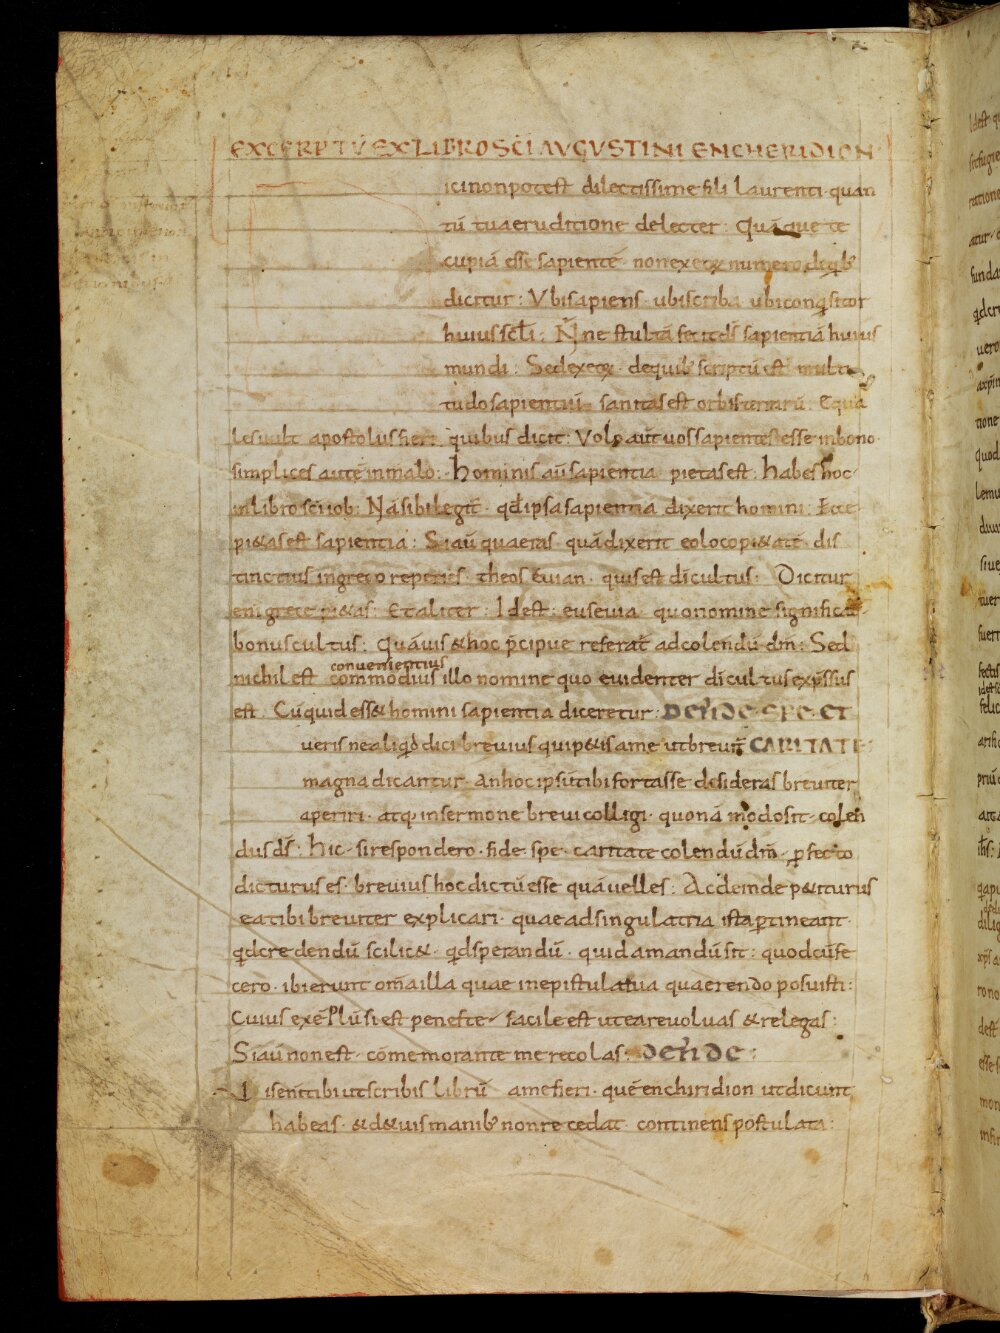 EXCERPTŪ EX LIBRO SC̄I AUGUSTINI ENCHERIDION
ici non potest dilectissime fili laurenti· quan
tū tua eruditione delecter: Quāque te
cupiā esse sapientē· non ex eoꝝ numero de qib;
dicitur: Ubi sapiens· ubi scriba ubi conqisitor
huius sc̄li: Nonne stultā fecit ds̄ sapientiā huius
mundi: Sed ex eoꝝ· de quib; scriptū est multi
tudo sapientiū· sanitas est orbis terrarū: Equa
les vult apostolus fieri· quibus dicit: Volo aūt vos sapientes esse in bono·
simplices autē in malo: Hominis aū sapientia pietas est: Habes hoc
in libro sc̄i iob: Nā sibi legit̄· qd̄ ipsa sapientia dixerit homini: Ecce
pi&as est sapientia: Si aū quaeras· quā dixerit eo loco pi&atē· dis
tinctius in greco reperies· theosevian· quis est di cultus: Dicitur
eni grece pi&as: Et aliter: Idest: eusevia· quo nomine significat̄
bonus cultus: Quāvis & hoc p̄cipue referat̄ ad colendū dm̄: Sed
convenientius
nichil est commodius illo nomine quo evidenter dī cultus exp̄ssus
est: Cū quid ess& homini sapientia diceretur: DE FIDE SPE ET
CARITATE
veris ne aliqd dici brevius qui p&is a me ut breviī
magna dicantur· an hoc ipsū tibi fortasse desideras breviter
aperiri· atq; in sermone brevi colligi· quonā modo sit colen
dus ds̄: Hic· si respondero· fide spe· caritate colendū dm̄· pfecto
dicturus es· brevius hoc dictū esse quā velles: Ac deinde p&iturus
ea tibi breviter explicari· quae ad singula tria ista ptineant·
qd credendū scilic&· qd sperandū· quid amandū sit: quod cū fe
cero· ibi erunt om̄a illa quae in epistula tua quaerendo posuisti:
Cuius exēplū si est penes te· facile est ut ea revolvas & relegas:
Si aū non est· cōmemorante me recolas: DE FIDE:
is enī tibi ut scribis librū a me fieri· quē enchiridion ut dicunt
habeas· & d& vis manib; non recedat· continens postulata: